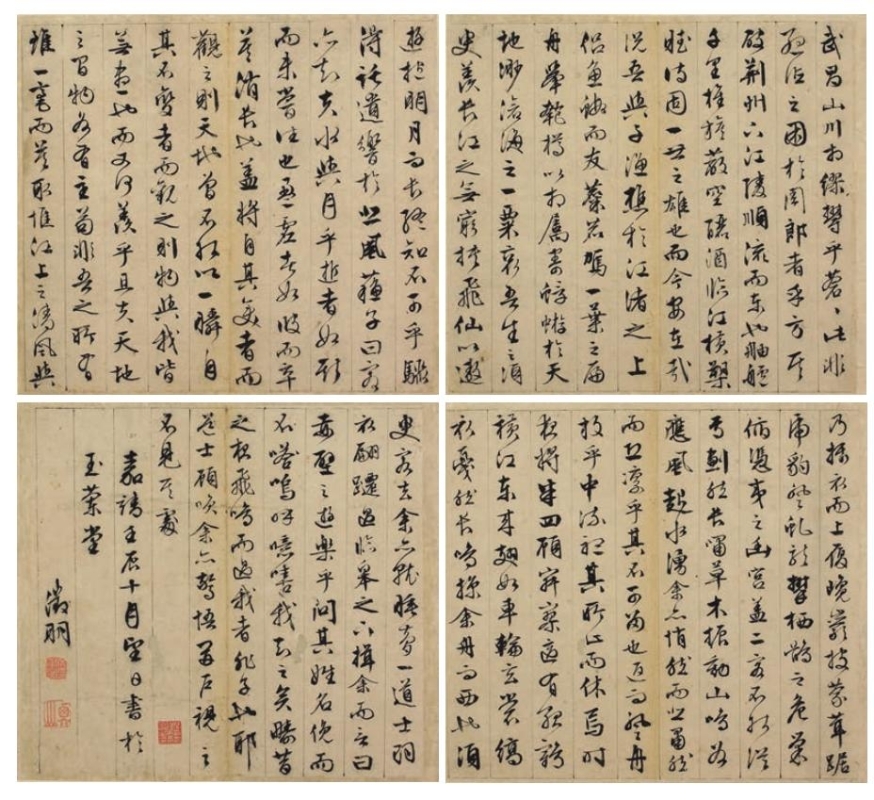 武昌山川相繆鬱乎蒼〻此非
孟德之困於周郎者乎方其
破荆州下江陵順流而東也舳艫
千里旌旗蔽空釃酒臨江橫槊
賦詩固一世之雄也而今安在哉
况吾與子漁樵於江渚之上
侣魚蝦而友麋鹿駕一葉之扁
舟舉匏樽以相屬寄蜉蝣於天
地渺滄海之一粟哀吾生之須
臾羨長江之無窮挾飛仙以遨
遊抱明月而長終知不可乎驟
得託遺響於悲風蘇子曰客
亦知夫水與月乎逝者如斯
而未嘗往也盈虛者如彼而卒
莫消長也蓋將自其變者而
觀之則天地曾不能以一瞬自
其不變者而觀之則物與我皆
無盡也而又何羨乎且夫天地
之間物各有主苟非吾之所有
雖一毫而莫取惟江上之清風與
乃攝衣而上履巉巖披蒙茸踞
虎豹登虬龍攀栖鶻之危巢
俯馮夷之幽宮蓋二客不能從
焉劃然長嘯草木振動山鳴谷
應風起水湧余亦悄然而悲肅然
而恐凜乎其不可留也返而登舟
放乎中流聽其所止而休焉時
夜將半四顧寂寥適有孤鶴
橫江東來翅如車輪玄裳縞
衣戛然長鳴掠余舟而西也須
臾客去余亦就睡夢一道士羽
衣翩躚過臨皋之下揖余而言曰
赤壁之遊樂乎問其姓名俛而
不答嗚呼噫嘻我知之矣疇昔
之夜飛鳴而過我者非子也耶
道士顧笑余亦驚悟開戶視之
不見其處
嘉靖壬辰十月望日書於
玉蘭堂
徵明